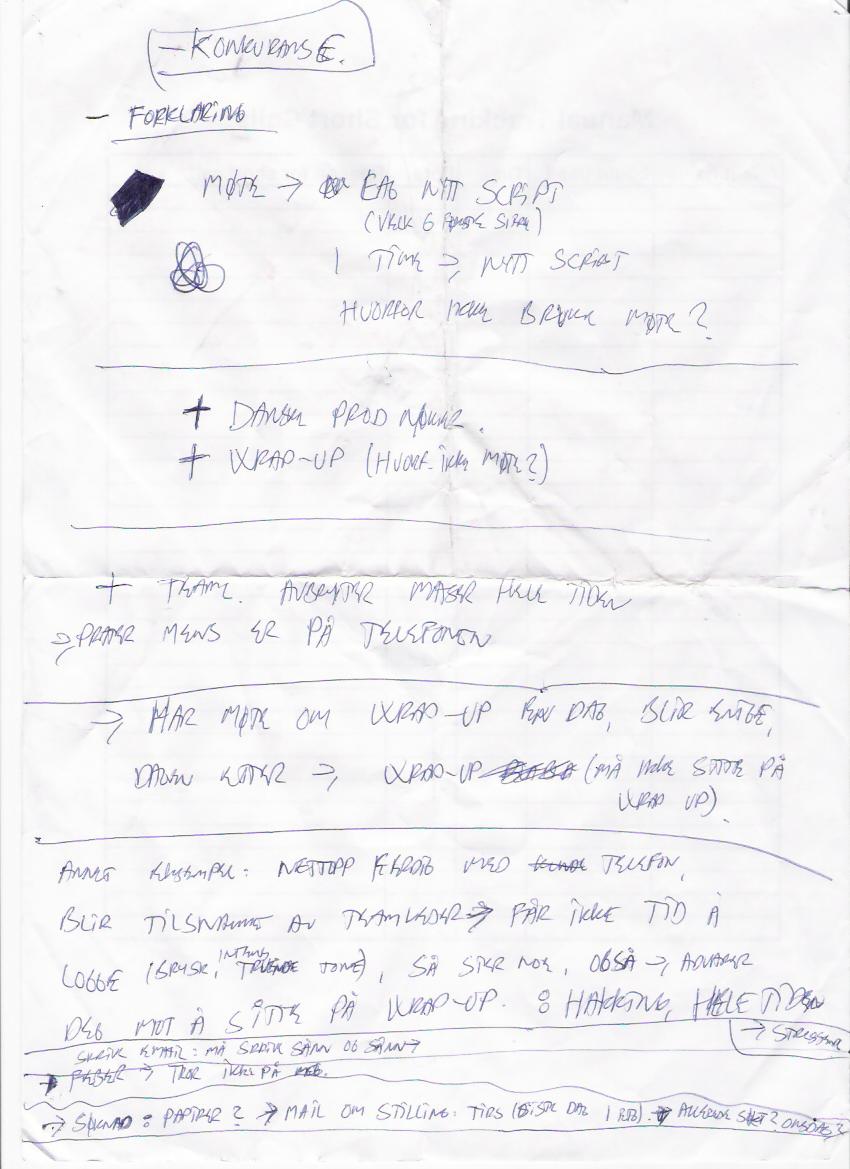 — KONKURANSE.
— FORKLARING
MØTE → EAG NYTT SCRIPT
(VEKK 6 FØRSTE SIFRE)
1 TIME → NYTT SCRIPT
HVORFOR IKKE BRUKE MØTE?
+ DANSK PROD NØKLER.
+ WRAP-UP (HVORF. IKKE MØTE?)
+ TEAML. AVBRYTER MASER HELE TIDEN
→ PRATER MENS ER PÅ TELEFONEN
→ HAR MØTE OM WRAP-UP EN DAG, BLIR ENIGE,
DAGEN ETTER → WRAP-UP (MÅ IKKE SITTE PÅ
WRAP UP).
ANNET EKSEMPEL: NETTOPP FERDIG MED TELEFON,
BLIR TILSNAKKET AV TEAMLEDER → FÅR IKKE TID Å
LOGGE (BRYSK, INTENS, TRUENDE TONE), SÅ SIER NOE, OGSÅ → ADVARER
DEG MOT Å SITTE PÅ WRAP-UP. : HAKKING, HELE TIDEN
→ STRESSENDE
SKRIV EMAIL: MÅ SKRIVE SÅNN OG SÅNN →
→ FEBER → TROR IKKE PÅ
→ SØKNAD: PAPIRER? → MAIL OM STILLING: TIPS (SISTE DAG → ALLEREDE SØKT? ONSDAG?